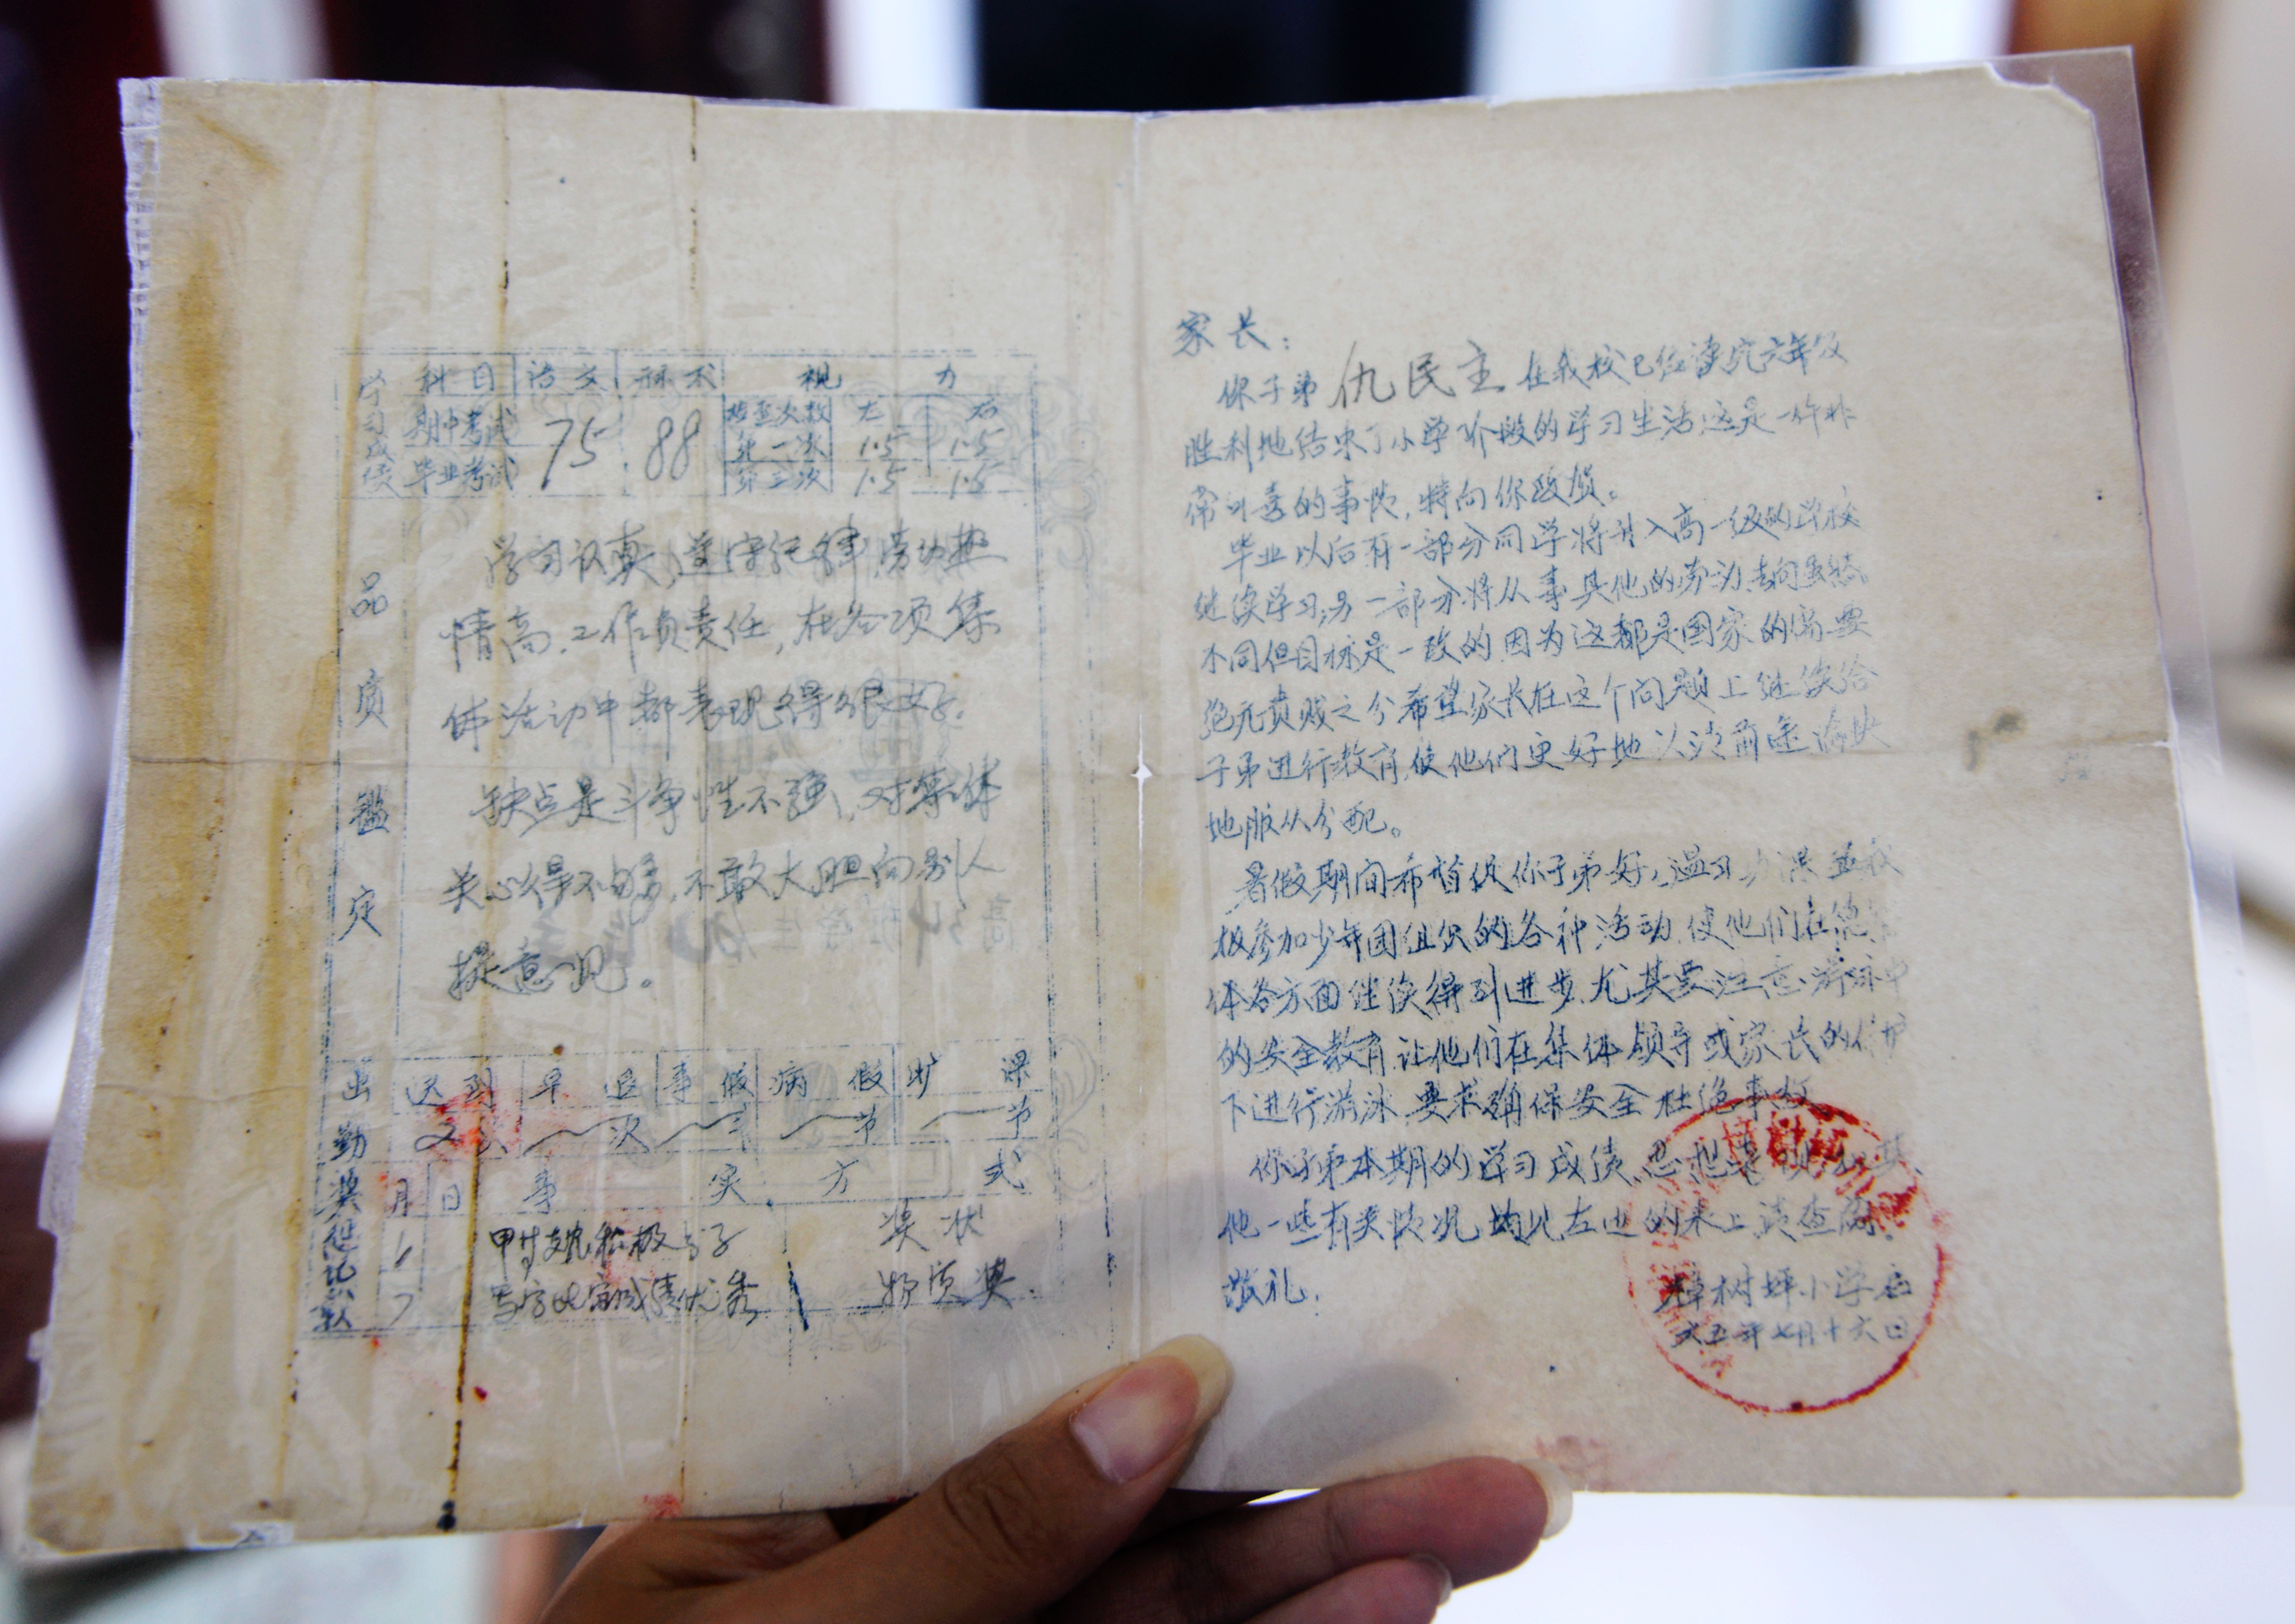 学习成绩 科目 语文 算术 视力
期中考试 75 88 检查次数 左 右
第一次 1.5 1.5
毕业考试 第二次 1.5 1.5
品质鉴定
学习认真,遵守纪律,劳动热
情高,工作负责任,在各项集
体活动中都表现得很好。
缺点是斗争性不强,对集体
关心得不够,不敢大胆向别人
提意见。
出勤 迟到 早退 事假 病假 旷课
次 次 节 节 节
奖惩记录 月 日 事实 方式
1 奖状
7 写字比赛成绩优秀 物质奖
家长:
你子弟仇民主在我校已经读完六年级
胜利地结束了小学阶段的学习生活,这是一件非
常可喜的事情,特向你致贺。
毕业以后有一部分同学将升入高一级的学校
继续学习,另一部分将从事其他的劳动,去向虽然
不同但目标是一致的,因为这都是国家的需要
绝无贵贱之分,希望家长在这个问题上继续给
子弟进行教育,使他们更好地以
地服从分配。
暑假期间希督促你子弟好好温习功课,并积
极参加少年团组织的各种活动,使他们在德
体各方面继续得到进步,尤其要注意游泳中
的安全教育,让他们在集体领导或家长的保护
下进行游泳,要求确保安全,杜绝事故。
你子弟本期的学习成绩、思想表现和其
他一些有关情况,均见左边的表上,请查阅。
敬礼!
樟树坪小学启
六五年七月十六日